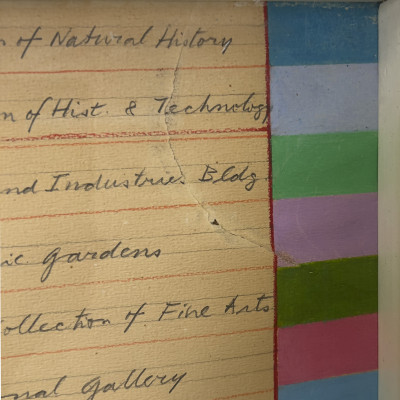 of Natural History
of Hist. & Technology
Industries Bldg
Gardens
Collection of Fine Arts
Gallery